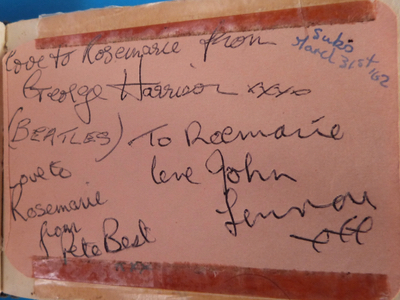 Love to Rosemarie from
George Harrison xxxo
(BEATLES)
Love to
Rosemarie
from
Pete Best
To Roemarie
love John
Lennon
Subs
March 31st, '62